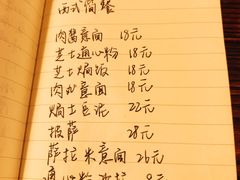 西式简餐
肉酱意面 18元
芝士通心粉 18元
芝士焗饭 18元
肉丸意面 18元
焗土豆泥 22元
披萨 28元
萨拉米意面 26元